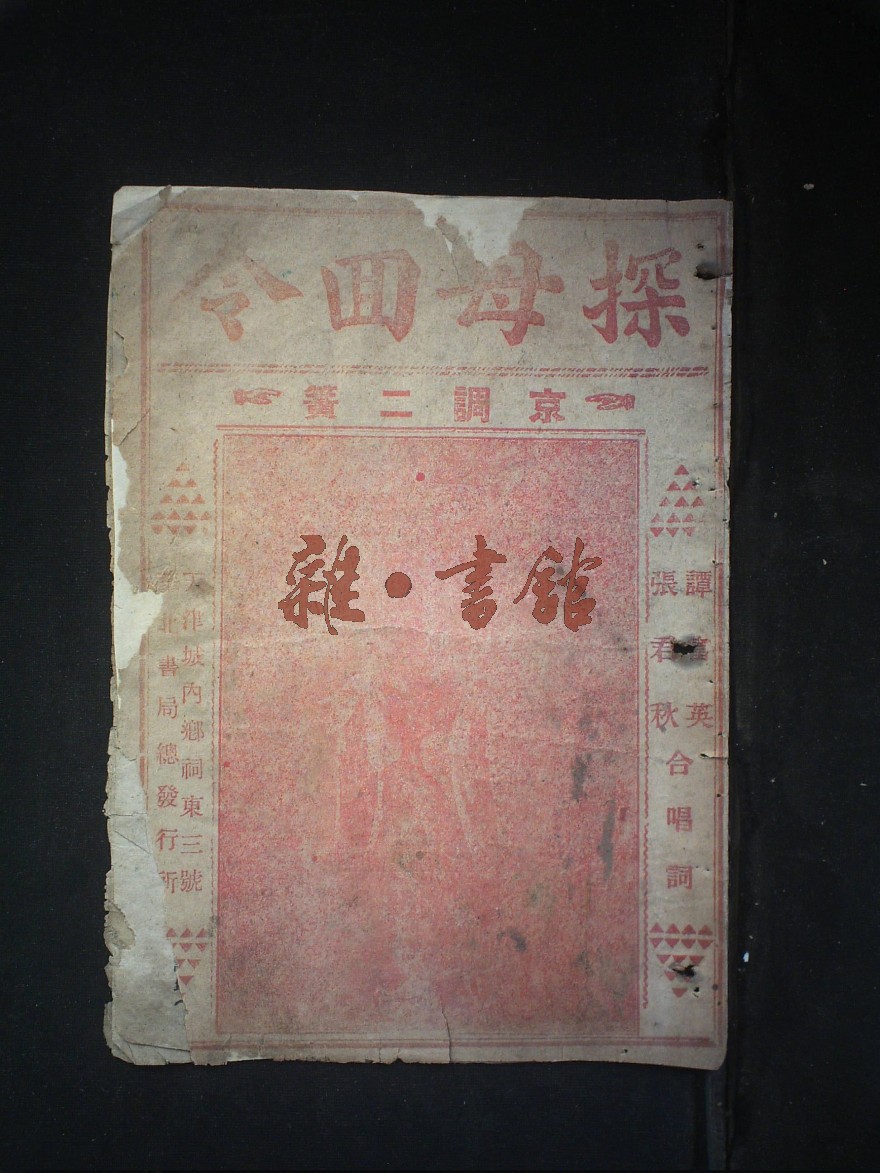 探母回令
京調二簧
譚富英
張君秋
合唱詞
雜·書館
天津城內鄉祠東三號
北書局總發行所